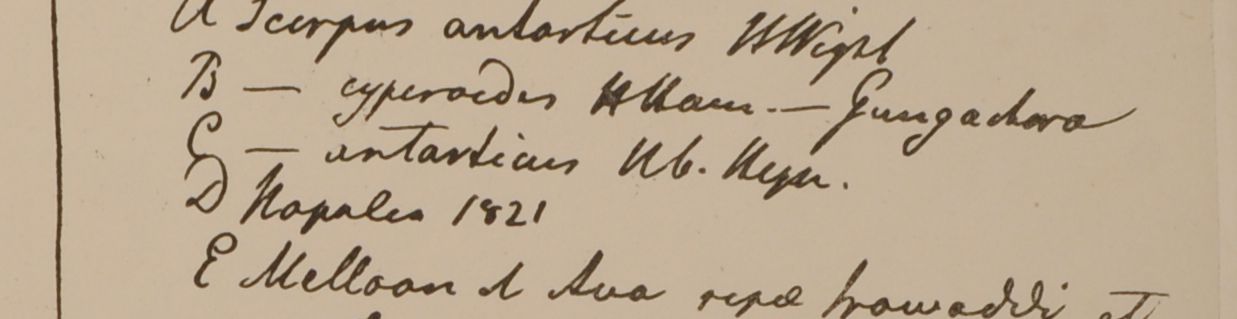 A Scirpus antarticus HWight
B — cyperoides HHam. — Gungachora
C — antarticus Hb. Heyn.
D Napalia 1821
E Melloon d Ava ripæ Irawaddi et